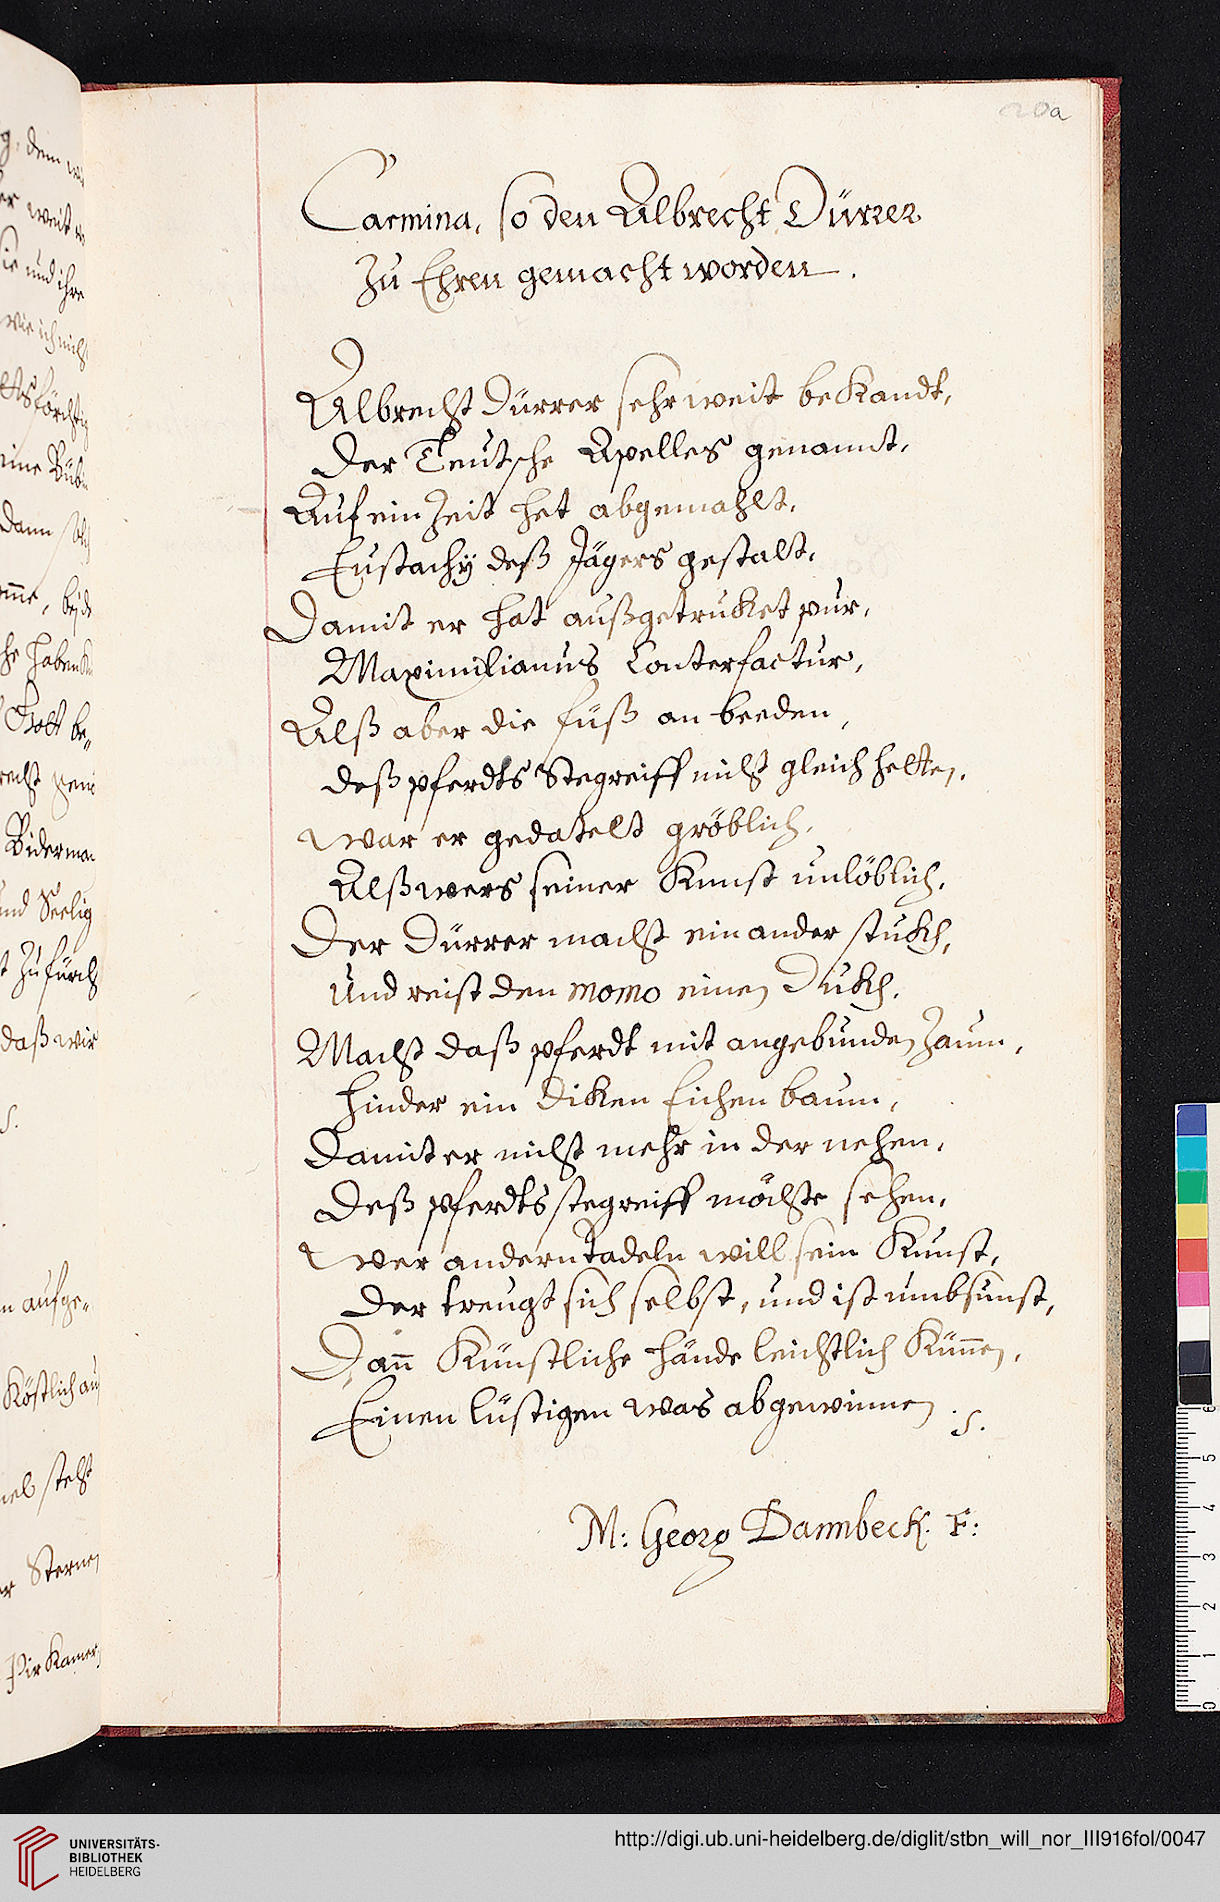 20a
Carmina, so den Albrecht Dürrer
Zu Ehren gemacht worden.
Albrecht Dürrer sehr weit bekandt,
Der Teutsche Apelles genannt,
Auf ein Zeit het abgemahlt,
Eustachÿ deß Jägers gestalt,
Damit er hat außgetruket pur,
Maximilianus Conterfactur,
Alß aber die füß an beeden,
deß pferdts Stegreiff nicht gleich hetten,
War er gedatelt gröblich,
Alß wers seiner Kunst unlöblich,
Der Dürrer macht ein ander stukh,
Und reist den momo einen Dukh,
Macht daß pferdt mit angebunden Zaum,
Hinder ein diken Eichen baum,
Damit er nicht mehr in der nehen,
Deß pferdts stegreiff möchte sehen,
Wer andern Tadeln will sein Kunst,
Der treugt sich selbst, und ist umbsunst,
Dann Künstliche Hände leichtlich Künnen,
Einen lüstigen was abgewinnen
M: Georg Dannbeck. F:
g, dem
er weit
sie und ihre
wie ich nicht
eine
dann
he haben
Gott be„
recht
Biderman
und Seelig
t Zu fürch
daß wir
S.
n aufge„
Köstlich auß
steht
er Sternen
UNIVERSITÄTS-
BIBLIOTHEK
HEIDELBERG
http://digi.ub.uni-heidelberg.de/diglit/stbn_will_nor_III916fol/0047
6
5
4
3
2
1
0